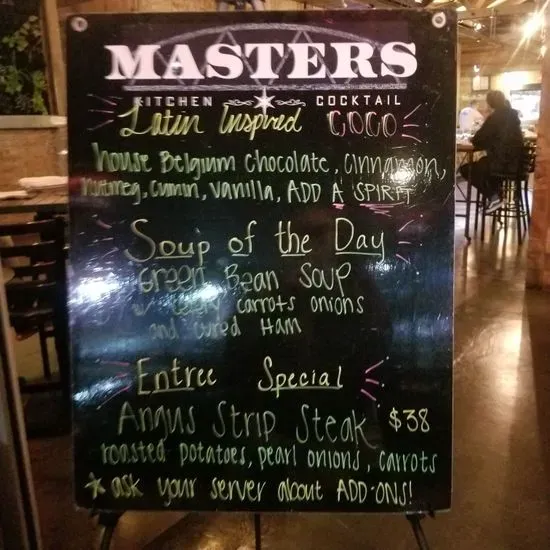 MASTERS
KITCHEN COCKTAIL
Latin Inspired COCO
house Belgium chocolate, cinnamon,
nutmeg, cumin, vanilla, ADD A SPIRIT
Soup of the Day
Green Bean Soup
w/ carrots onions
and cured Ham
Entree Special
Angus Strip Steak $38
roasted potatoes, pearl onions, carrots
* ask your server about ADD-ONS!